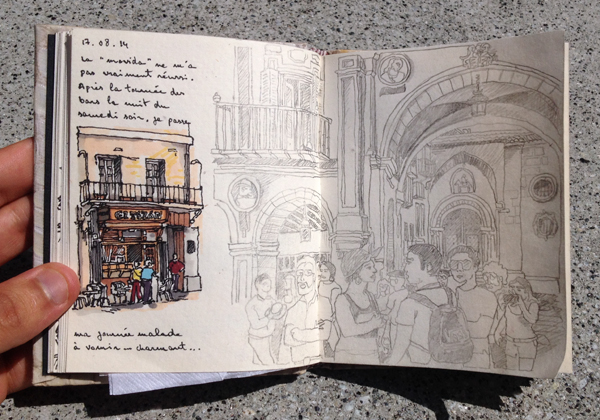 17.08.14
La "movida" ne m'a
pas vraiment réussi.
Après la tournée des
bars la nuit du
samedi soir, je passe
ma journée malade
à vomir... charmant...